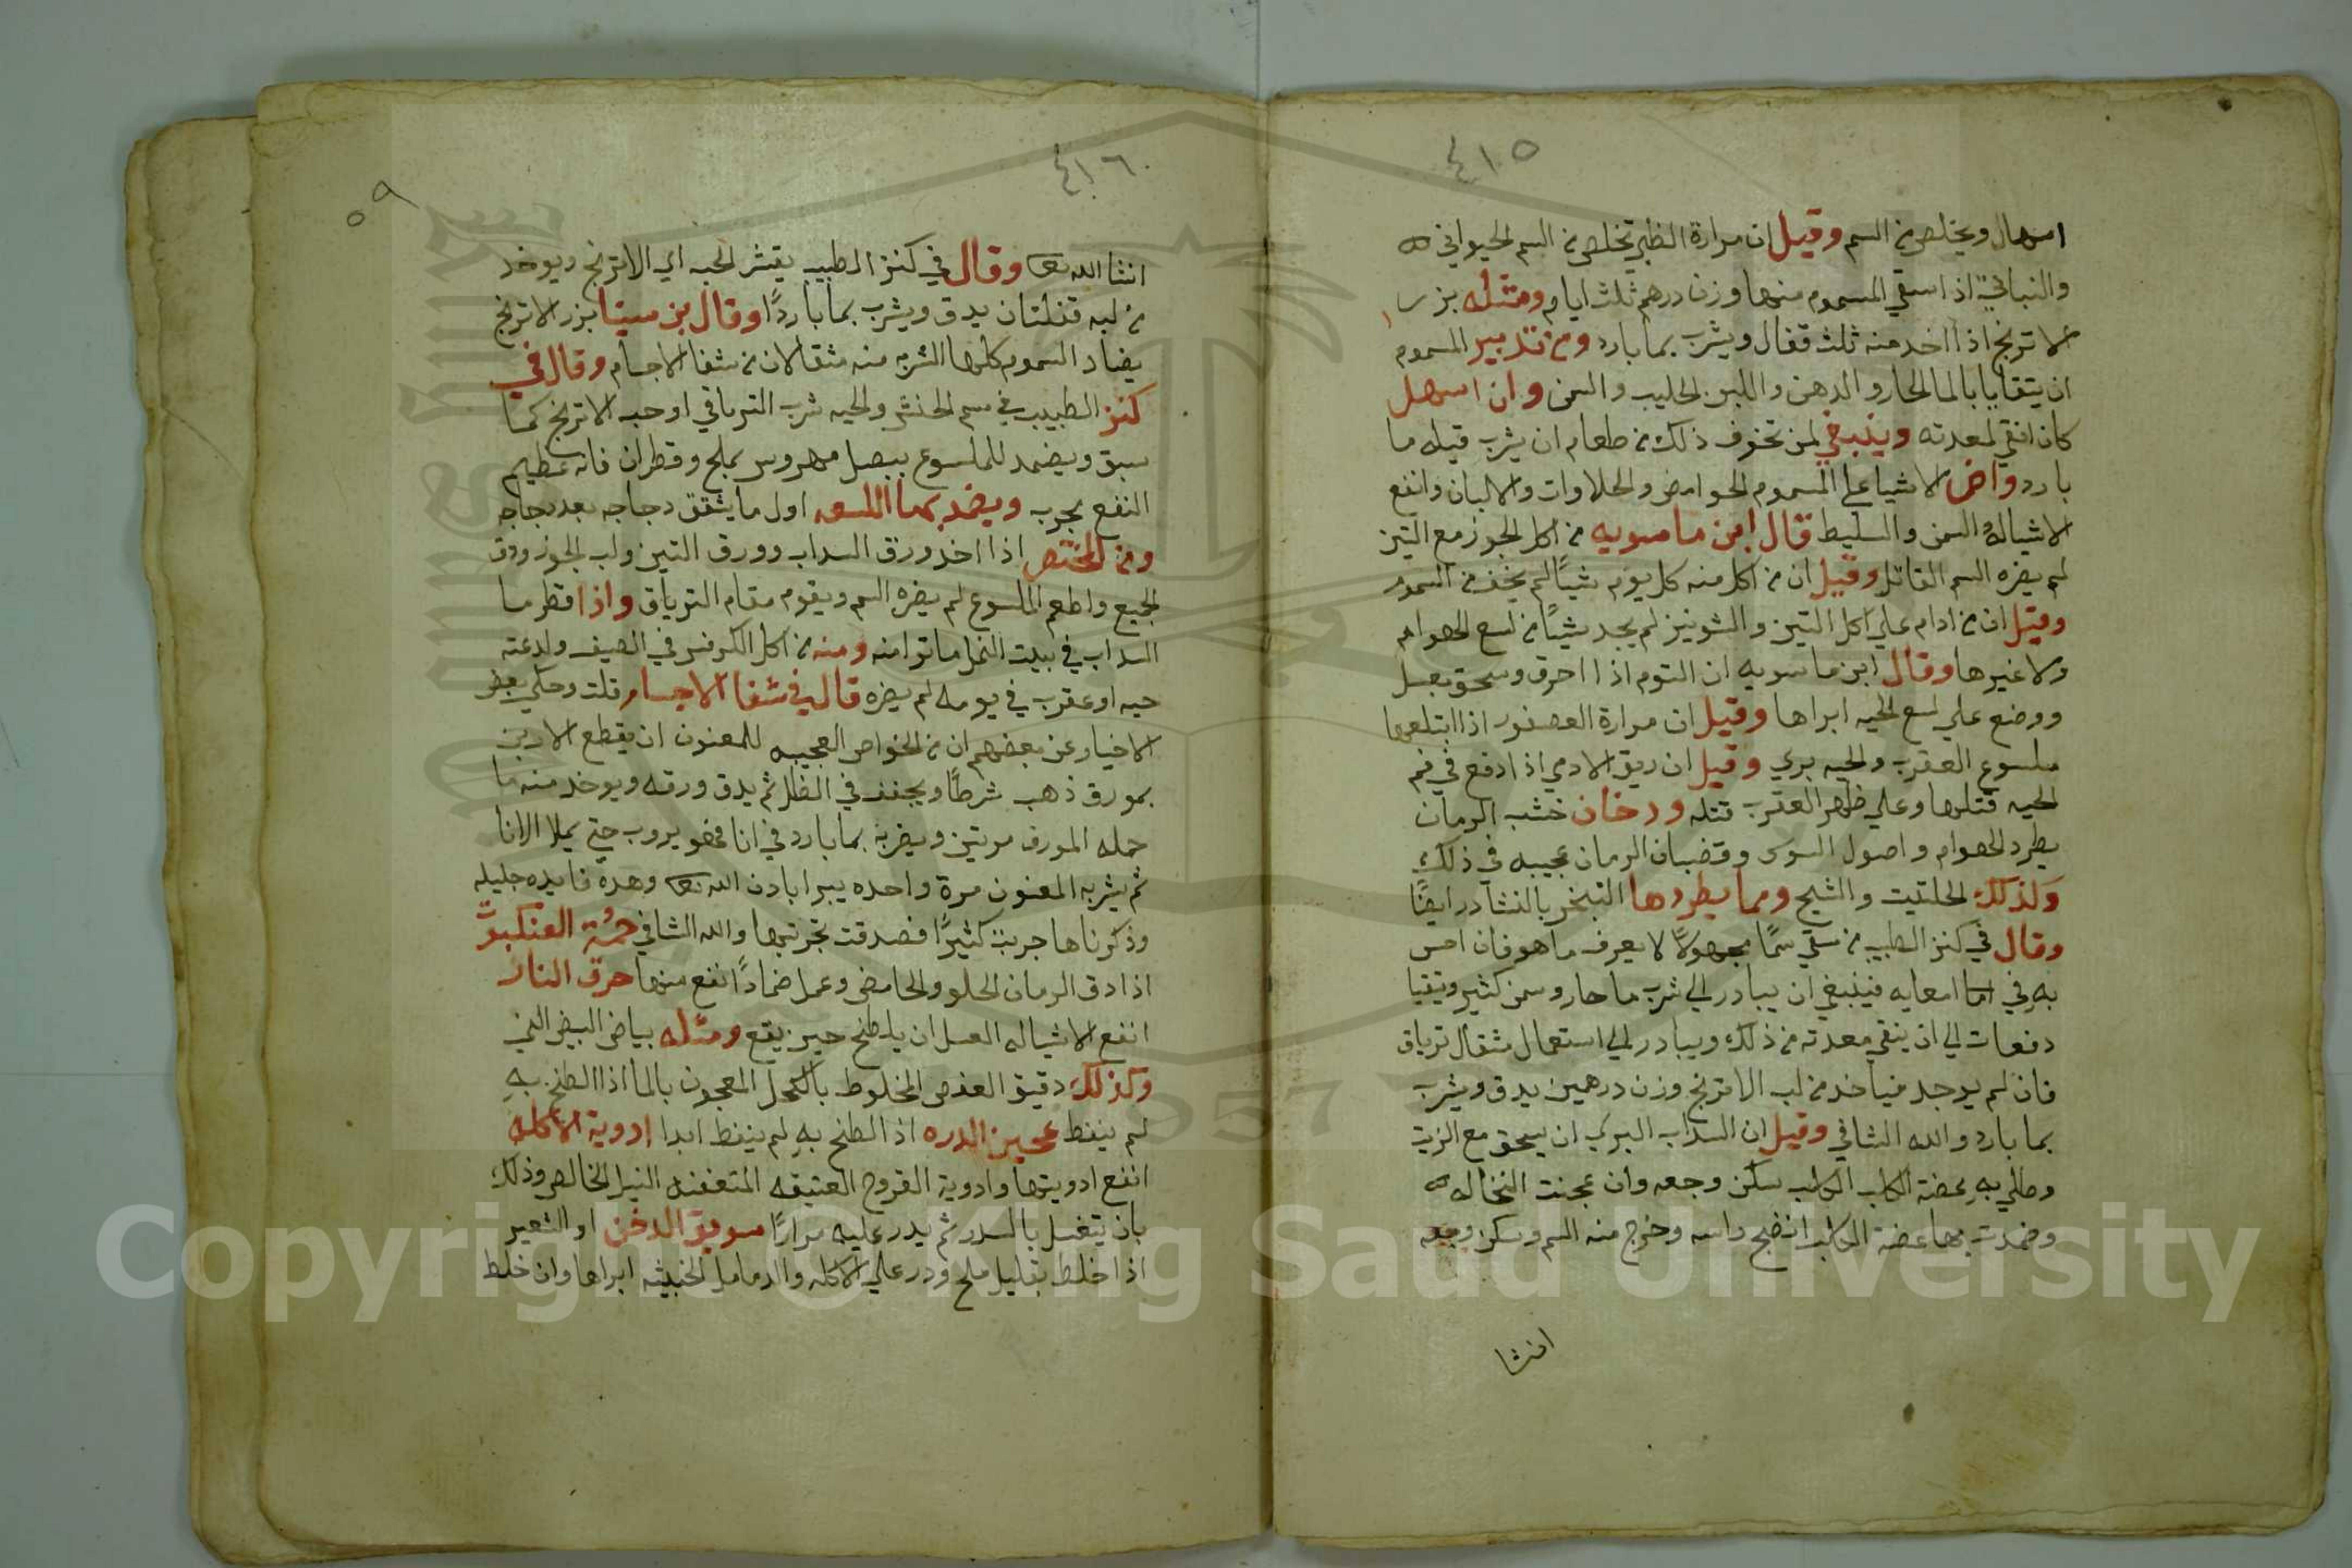 ٤١٥
اسهال ويخلص من السم وقيل ان مرارة الظبي تخلص من السم الحيواني
والنباتي اذا سقي المسموم منها وزن درهم ثلث ايام ومثله بزر
الاترنج اذا اخد منه ثلث قفال ويشرب بما بارد ومن تدبير المسموم
ان يتقايا بالما الحار والدهن واللبن الحليب والسمن وان اسهل
كان انقي لمعدته وينبغي لمن تخوف ذلك من طعام ان يشرب قبله ما
بارد واضر الاشيا علي المسموم الحوامض والحلاوات والالبان وانفع
الاشياله السمن والسليط قال ابن ماسويه من اكل الجوز مع التين
لم يضره السم القاتل وقيل ان من اكل منه كل يوم شيًا لم يخف من السموم
وقيل ان من ادام علي اكل التين والشونيز لم يجد شيًا من لسع الهوام
ولا غيرها وقال ابن ماسويه ان التوم اذا احرق وسحق بعسل
ووضع علي لسع الحيه ابراها وقيل ان مرارة العصفور اذا ابتلعها
ملسوع العقرب والحيه بري وقيل ان ريق الادمي اذا دفع في فم
الحيه قتلها وعلي ظهر العقرب قتله ودخان خشب الرمان
يطرد الهوام واصول السوس وقضبان الرمان عجيبه في ذلك
وكذلك الحلتيت والشيح ومما يطردها التبخر بالنشادر ايضًا
وقال في كنز الطبيب من سقي سمًا مجهولًا لا يعرف ما هو فان احس
به في امعايه فينبغي ان يبادر الي شرب ما حار وسمن كثير ويتقيا
دفعات الي ان ينقي معدته من ذلك ويبادر الي استعمال مثقال ترياق
فان لم يوجد فياخد من لب الاترنج وزن درهمين يدق ويشرب
بما بارد والله الشافي وقيل ان السداب البري ان سحق مع الزيت
وطلي به عضة الكلب الكلب سكن وجعه وان عجنت النخاله
وضمدت بها عضة الكلب انضج راسه وخرج منه السم وسكن وجعه
انشا
٤١٦
٥٩
انشا الله تعالى وقال في كنز الطبيب يقشر الحبه اي الاترنج ويوخد
من لبه قفلتان يدق ويشرب بما باردًا وقال بن سينا بزر الاترنج
يضاد السموم كلها الشربه منه مثقالان من شفا الاجسام وقال في
كنز الطبيب في سم الحنش والحيه شرب الترياق او حب الاترنج كما
سبق ويضمد للملسوع ببصل مهروس بملح وقطران فانه عظيم
النفع مجرب ويضمد بها اللسعه اول ما يشقق دجاجه بعد دجاجه
ومن المختصر اذا اخد ورق السداب وورق التين ولب الجوز ودق
الجميع واطعم الملسوع لم يضره السم ويقوم مقام الترياق واذا قطر ما
السداب في بيت النمل ماتوا منه ومنه من اكل الكرفس في الصيف ولدعته
حيه او عقرب في يومه لم يضره قال في شفا الاجسام قلت وحكي بعض
الاخيار عن بعضهم ان من الخواص العجيبه للمعنون ان يقطع الادين
بمورق ذهب شرطًا ويجفف في الظل ثم يدق ورقه ويوخد منه ما
حمله المورق مرتين ويضربه بما بارد في انا فهو يروب حتي يملا الانا
ثم يشربه المعنون مرة واحده يبرا باذن الله تعالى وهده فايده جليله
وذكرناها جربت كثيرًا فصدقت تجربتها والله الشافي حمرة العنكبوت
اذا دق الرمان الحلو والحامض وعمل ضمادًا نفع منها حرق النار
انفع الاشياله العسل ان يلطخ حين يقع ومثله بياض البيض الني
وكذلك دقيق العدس المخلوط بالكحل المعجون بالما اذا لطخ به
لم ينفط عجين الدره اذا لطخ به لم ينفط ابدا ادوية الاكله
انفع ادويتها وادوية القروح العتيقه المتعفنه النيل الخالص وذلك
بان يتغسل بالسدر ثم يدر عليه مرارًا سويق الدخن او الشعير
اذا خلط بقليل ملح ودر علي الاكله والدمامل الخبيثه ابراها وان خلط
Copyright © King Saud University
1957